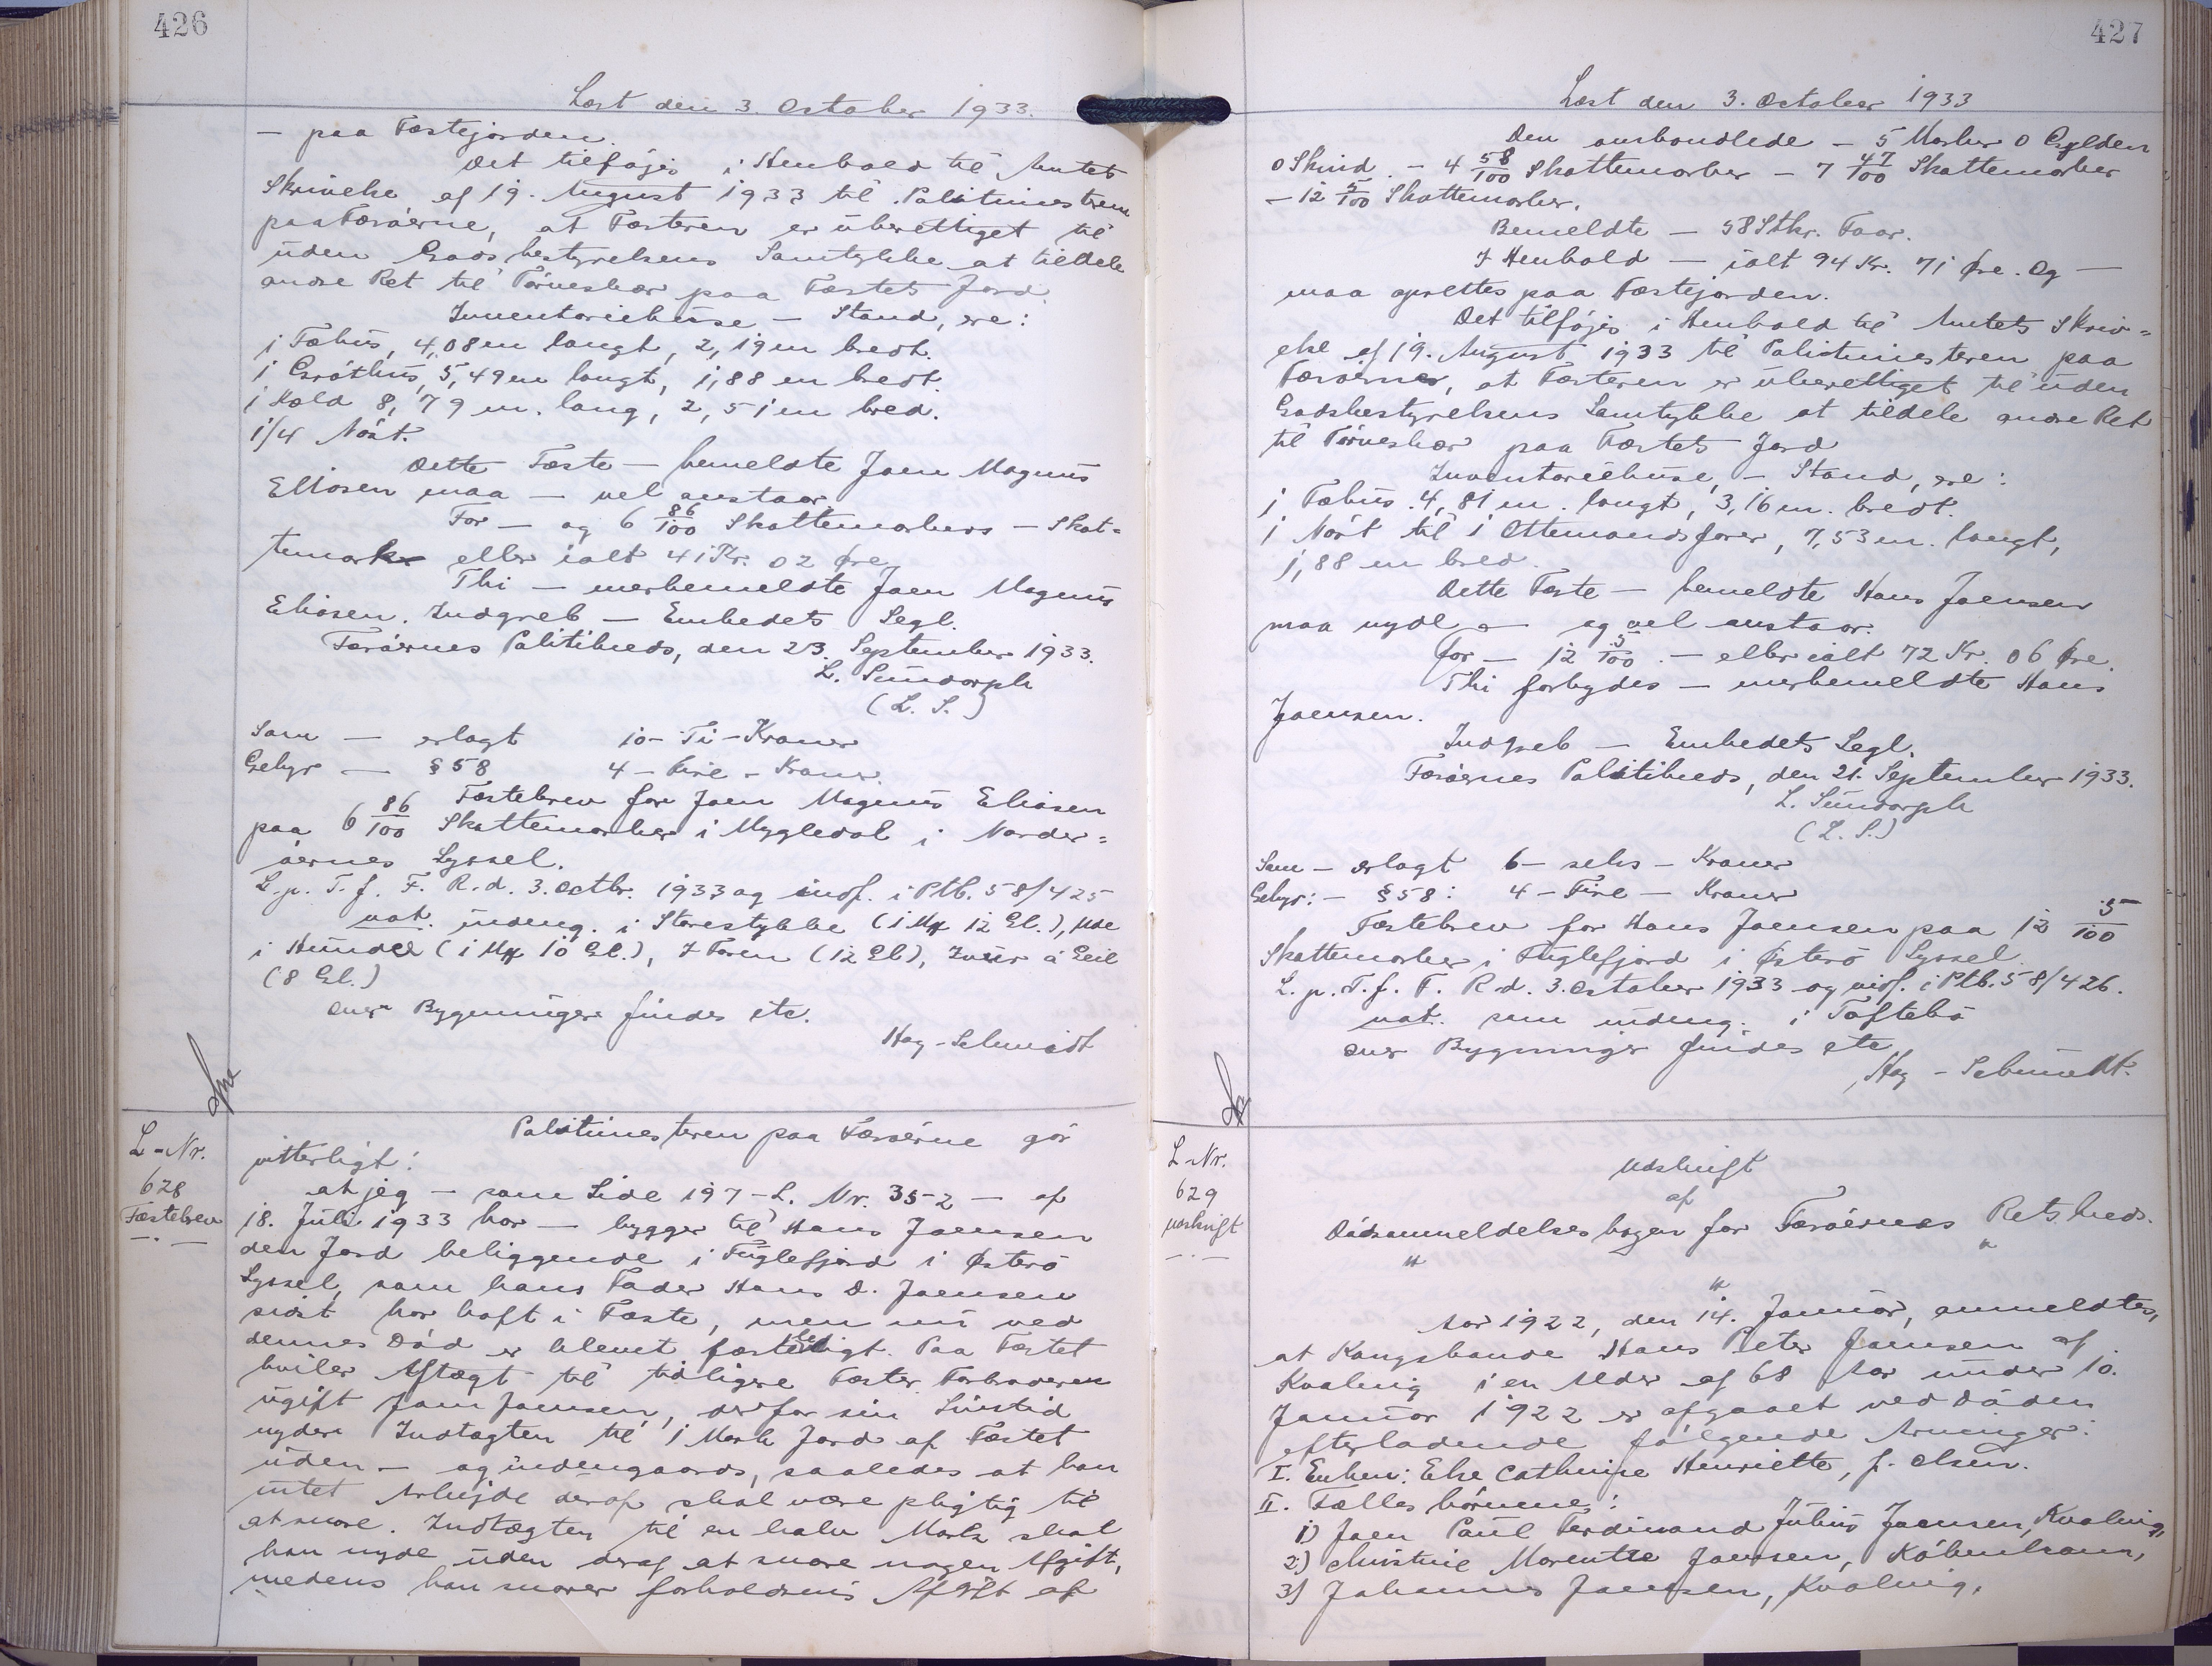 426
Læst den 3. October 1933.
- paa Fæstejorden.
Det tilføjes i Henhold til Amtets
Skrivelse af 19. August 1933 til Politimesteren
paa Færøerne, at Fæsteren er uberettiget til
uden Godsbestyrelsens Samtykke at tildele
andre Ret til Tørveskær paa Fæstets Jord.
Inventariehuse - Stand, ere:
1 Fæhus, 4,08 m langt, 2,19 m bredt.
1 Gróthus, 5,49 m langt, 1,88 m bredt.
1 Kold 8,79 m. lang, 2,51 m bred.
1/4 Nóst.
Dette Fæste - bemeldte Joen Magnus
Eliasen maa - vel anstaar
For - og 6 86/100 Skattemarkers - Skat=
temark eller ialt 41 Kr. 02 Øre.
Thi - merbemeldte Joen Magnus
Eliasen. Indgreb - Embedets Segl.
Færøernes Politikreds, den 23. September 1933.
L. Sundorph
(L. S.)
Som - erlagt 10 - Ti - Kroner
Gebyr - § 58 4 - Fire - Kroner.
Fæstebrev for Joen Magnus Eliasen
paa 6 86/100 Skattemarker i Mygledal i Norder=
øernes Syssel.
L. p. T. f. F. R. d. 3. Octbr. 1933 og indf. i Ptb. 58/425
not. indeng. i Storestykke (1 Mk 12 Gl.), Ude
i Hunde (1 Mk 10 Gl.), I Toren (12 Gl), Inur á Geil
(8 Gl.)
Bygninger findes etc.
Høg-Schmidt
L-Nr.
628
Fæstebrev
Politimesteren paa Færøerne gør
vitterligt:
at jeg - som Side 197 - L. Nr. 352 - af
18. Juli 1933 har - bygger til Hans Joensen
den Jord beliggende i Fuglefjord i Østerø
Syssel, som hans Fader Hans D. Joensen
sidst har haft i Fæste, men nu ved
dennes Død er blevet fæsteledigt. Paa Fæstet
hviler Aftægt til tidligere Fæster Farbroderen
ugift Joen Joensen, der for sin Livstid
nyder Indtægten til 1 Mark Jord af Fæstet
uden- og indengaards, saaledes at han
intet Arbejde deraf skal være pligtig til
at svare. Indtægten til en halv Mark skal
han nyde uden deraf at svare nogen Afgift,
medens han svarer forholdsvis Afgift af
427
Læst den 3. October 1933
Den omhandlede - 5 Marker 0 Gylden
0 Skind. - 4 58/100 Skattemarker - 7 47/100 Skattemarker
- 12 5/100 Skattemarker.
Bemeldte - 58 Stkr. Faar.
I Henhold - ialt 94 Kr. 71 Øre. Og -
maa oprettes paa Fæstejorden.
Det tilføjes i Henhold til Amtets Skriv=
else af 19. August 1933 til Politimesteren paa
Færøerne, at Fæsteren er uberettiget til uden
Godsbestyrelsens Samtykke at tildele andre Ret
til Tørveskær paa Fæstets Jord
Inventariehuse, - Stand, ere:
1 Fæhus. 4,81 m. langt, 3,16 m. bredt.
1 Nóst til 1 Ottemandsfarer, 7,53 m. langt,
1,88 m bred.
Dette Fæste - bemeldte Hans Joensen
maa nyde - og vel anstaar.
For - 12 5/100. - eller ialt 72 Kr. 06 Øre.
Thi forbydes - merbemeldte Hans
Joensen.
Indgreb - Embedets Segl.
Færøernes Politikreds, den 21. September 1933.
L. Sundorph
(L. S.)
Som - erlagt 6 - seks - Kroner
Gebyr: - § 58: 4 - Fire - Kroner
Fæstebrev for Hans Joensen paa 12 5/100
Skattemarker i Fuglefjord i Østerø Syssel.
L. p. T. f. F. R. d. 3. October 1933 og indf. i Ptb. 58/426.
not. som indeng. i Toftebø
Bygninger findes etc.
Høg-Schmidt.
L-Nr.
629
Udskrift
Udskrift
af
Dødsanmeldelsesbogen for Færøernes Retskreds.
Aar 1922, den 14. Januar, anmeldtes,
at Kongsbonde Hans Peter Joensen af
Kvalvig i en Alder af 68 Aar under 10.
Januar 1922 er afgaaet ved Døden
efterladende følgende Arvinger:
I. Enken: Else Cathrine Henriette, f. Olsen.
II. Fællesbørnene:
1) Joen Paul Ferdinand Julius Joensen, Kvalvig,
2) Christine Marentze Joensen, København,
3) Johannes Joensen, Kvalvig,